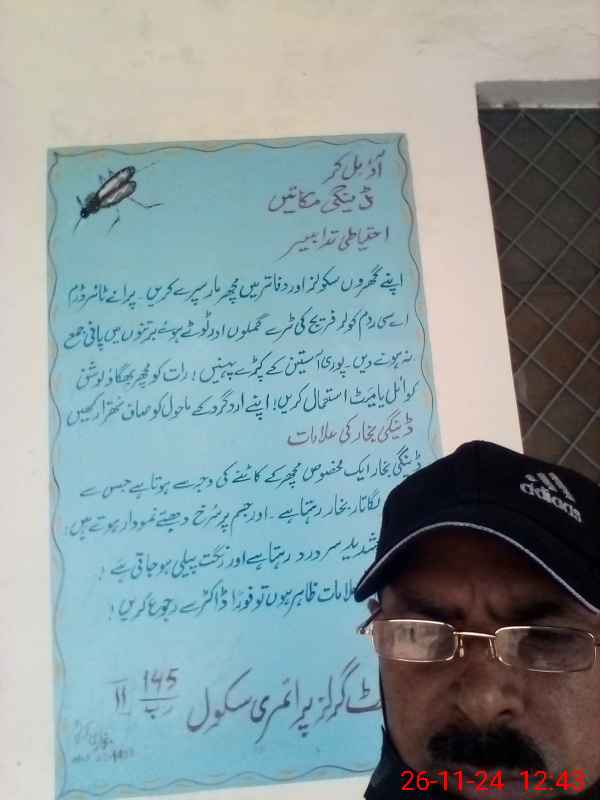 آؤ مل کر
ڈینگی مکائیں
احتیاطی تدابیر
اپنے گھروں سکولز اور دفاتر میں مچھر مار سپرے کریں۔ پرانے ٹائر ڈرم
اے سی روم کولر فریج کی ٹرے گملوں اور ٹوٹے ہوئے برتنوں میں پانی جمع
نہ ہونے دیں۔ پوری آستین کے کپڑے پہنیں! رات کو مچھر بھگاؤ لوشن
کوائل یا میٹ استعمال کریں! اپنے اردگرد کے ماحول کو صاف ستھرا رکھیں
ڈینگی بخار کی علامات
ڈینگی بخار ایک مخصوص مچھر کے کاٹنے کی وجہ سے ہوتا ہے جس سے
لگاتار بخار رہتا ہے۔ اور جسم پر سرخ دھبے نمودار ہوتے ہیں!
شدید سر درد رہتا ہے اور رنگت پیلی ہو جاتی ہے!
علامات ظاہر ہوں تو فوراً ڈاکٹر سے رجوع کریں!
گرلز پرائمری سکول 145 رب 11
adidas
26-11-24 12:43